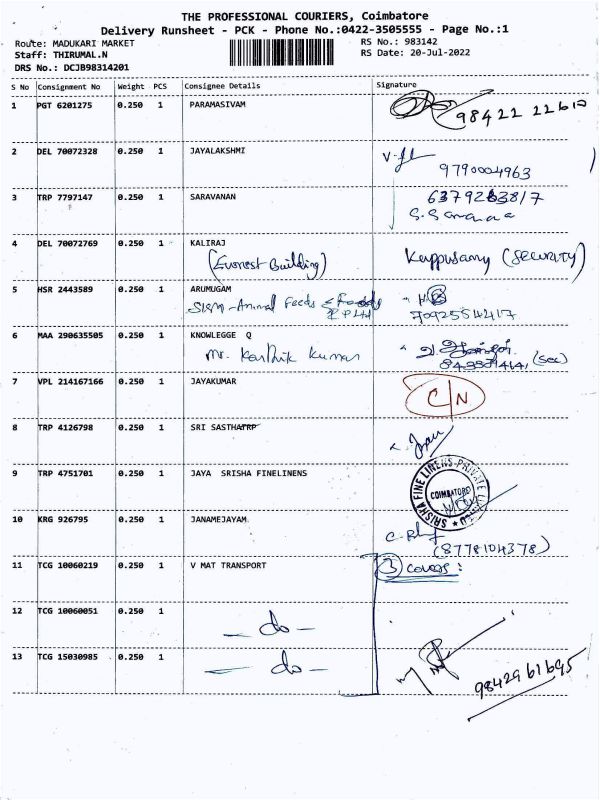 THE PROFESSIONAL COURIERS, Coimbatore
Delivery Runsheet - PCK - Phone No.:0422-3505555 - Page No.:1
Route: MADUKARI MARKET RS No.: 983142
Staff: THIRUMAL.N RS Date: 20-Jul-2022
DRS No.: DCJB98314201
S No Consignment No Weight PCS Consignee Details Signature
1 PGT 6201275 0.250 1 PARAMASIVAM
98422 22610
2 DEL 70072328 0.250 1 JAYALAKSHMI
9790004963
3 TRP 7797147 0.250 1 SARAVANAN
4 DEL 70072769 0.250 1 KALIRAJ
(Everest Building) Kuppusamy (SECURITY)
5 HSR 2443589 0.250 1 ARUMUGAM
Animal Feeds & Foods
(I) P Ltd 7092554417
6 MAA 290635505 0.250 1 KNOWLEGGE Q
Mr. Karthik Kumar (Sec)
7 VPL 214167166 0.250 1 JAYAKUMAR
C/N
8 TRP 4126798 0.250 1 SRI SASTHATRP
9 TRP 4751701 0.250 1 JAYA SRISHA FINELINENS
SRISHA FINE LINENS PRIVATE LIMITED
COIMBATORE
10 KRG 926795 0.250 1 JANAMEJAYAM
(8778104378)
11 TCG 10060219 0.250 1 V MAT TRANSPORT
3 covers :
12 TCG 10060051 0.250 1
- do -
13 TCG 15030985 0.250 1
- do -
9842961695